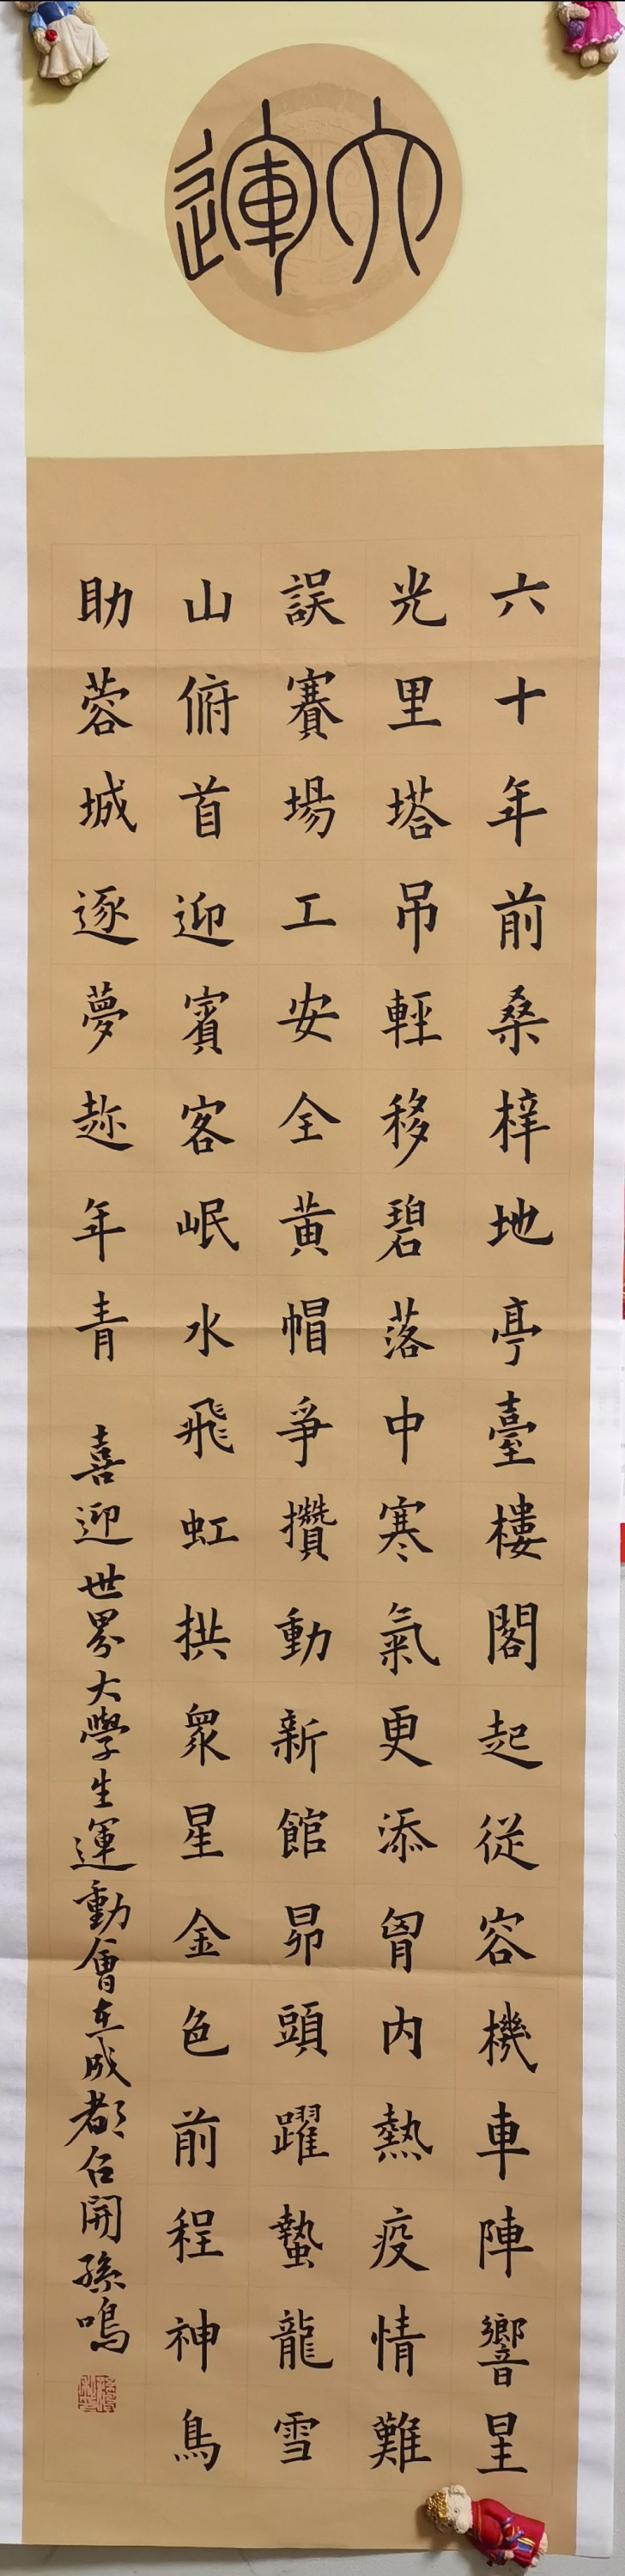 大運
六十年前桑梓地亭臺樓閣起從容機車陣響星
光里塔吊輕移碧落中寒氣更添胷内熱疫情難
誤賽場工安全黄帽爭攢動新館昂頭躍蟄龍雪
山俯首迎賓客岷水飛虹拱衆星金色前程神鳥
助蓉城逐夢趂年青
喜迎世界大學生運動會在成都召開孫鳴